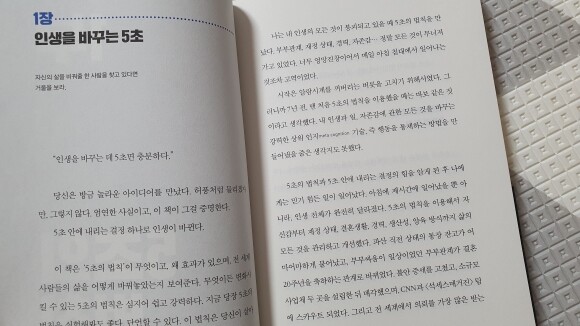 1장
인생을 바꾸는 5초
자신의 삶을 바꿔줄 한 사람을 찾고 있다면
거울을 보라.
"인생을 바꾸는 데 5초면 충분하다."
당신은 방금 놀라운 아이디어를 만났다. 허풍처럼 들리겠지
만, 그렇지 않다. 엄연한 사실이고, 이 책이 그걸 증명한다.
5초 안에 내리는 결정 하나로 인생이 바뀐다.
이 책은 '5초의 법칙'이 무엇이고, 왜 효과가 있으며, 전 세계
사람들의 삶을 어떻게 바꿔놓았는지 보여준다. 무엇이든 변화시
킬 수 있는 5초의 법칙은 실지어 쉽고 강력하다. 지금 당장 5초의
법칙을 실험해봐도 좋다. 단언할 수 있다. 이 법칙은 당신이 삶
나는 내 인생의 모든 것이 붕괴되고 있을 때 5초의 법칙을 만
났다. 부부관계, 재정 상태, 경력, 자존감… 정말 모든 것이 무너져
가고 있었다. 너무 엉망진창이어서 매일 아침 침대에서 일어나는
것조차 고역이었다.
시작은 알람시계를 꺼버리는 버릇을 고치기 위해서였다. 그
러니까 7년 전, 맨 처음 5초의 법칙을 이용했을 때는 바보 같은 짓
이라고 생각했다. 내 인생과 일, 자존감에 관한 모든 것을 바꾸는
강력한 상위 인지meta-cognition 기술, 즉 행동을 통제하는 방법을 만
들어냈을 줄은 생각지도 못했다.
5초의 법칙과 5초 안에 내리는 결정의 힘을 알게 된 후 나에
게는 믿기 힘든 일이 일어났다. 아침에 제시간에 일어났을 뿐 아
니라, 인생 전체가 완전히 달라졌다. 5초의 법칙을 이용해서 자
신감부터 재정 상태, 결혼생활, 경력, 생산성, 양육 방식까지 삶의
모든 것을 관리하고 개선했다. 파산 직전 상태의 통장 잔고가 어
마어마하게 불어났고, 부부싸움이 일상이었던 부부관계가 결혼
20주년을 축하하는 관계로 바뀌었다. 불안 증세를 고쳤고, 소규모
사업체 두 곳을 설립한 뒤 매각했으며, CNN과 〈석세스매거진〉 팀
에 스카우트 되었다. 그리고 전 세계에서 의뢰를 가장 많은 받는